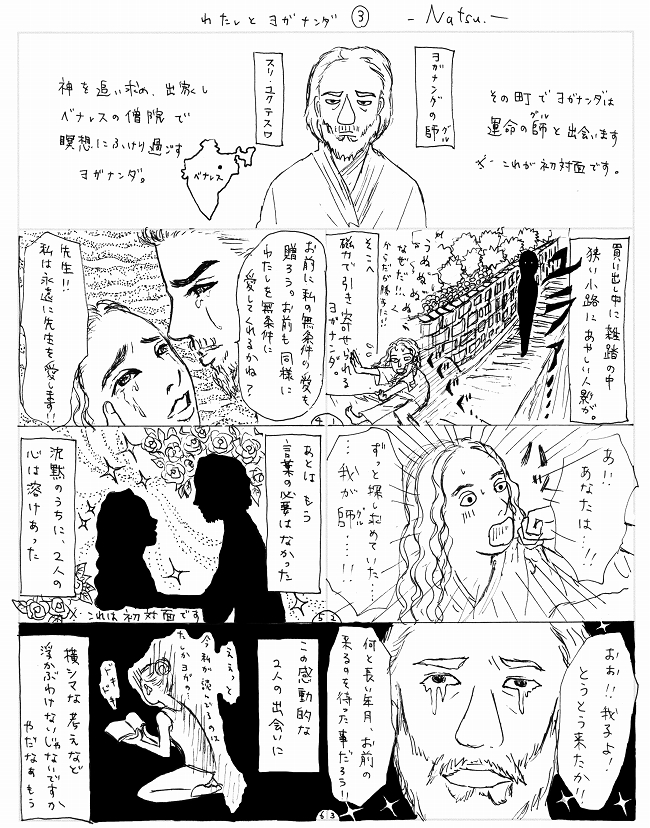 わたしとヨガナンダ ③ -Natsu.-
その町でヨガナンダは
運命の師と出会います
グル
※これが初対面です。
ヨガナンダの師
グル
スリ・ユクテスワ
神を追い求め、出家し
ベナレスの僧院で
瞑想にふけり過ごす
ヨガナンダ。
ベナレス
買い出し中に雑踏の中
狭い小路にあやしい人影が。
うぬぬぬぬぬく
なぜだ!!
からだが勝手に!!
そこへ
磁力で引き寄せられる
ヨガナンダ。
あ!!
あなたは…!!
ずっと探し求めていた…
…我が師…!!
グル
おお!!我子よ!
とうとう来たか!!
何と長い年月、お前の
来るのを待った事だろう!!
お前に私の無条件の愛を
贈ろう。お前も同様に
わたしを無条件に
愛してくれるかね?
先生!!
私は永遠に先生を愛します!!
41
あとはもう
言葉の必要はなかった
沈黙のうちに、2人の
心は溶けあった
※これは初対面です
52
この感動的な
2人の出会いに
ええっと
今私が読んでるのは
たしかヨガの…
ドキドキ
横シマな考えなど
浮かぶわけないじゃないですか
やだなぁもう
63